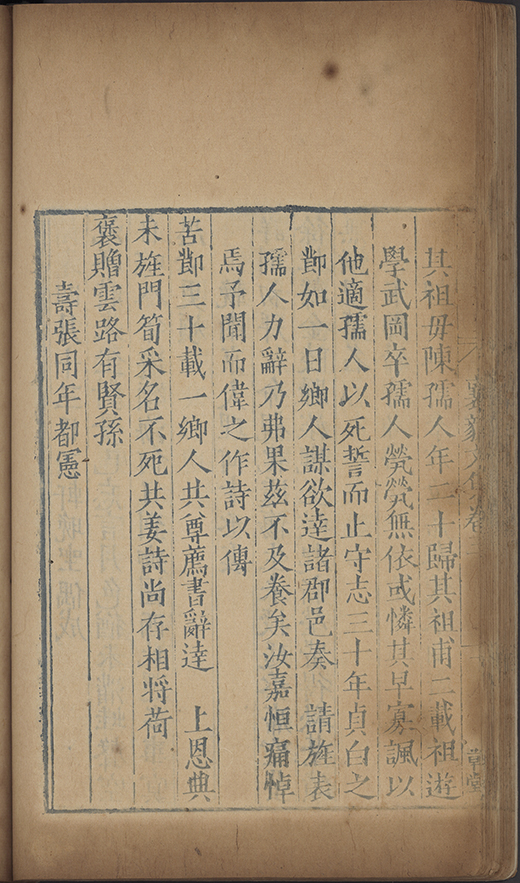 其祖母陳孺人年二十歸其祖甫二載祖遊
學武岡卒孺人煢煢無依或憐其早寡諷以
他適孺人以死誓而止守志三十年貞白之
節如一日鄉人謀欲達諸郡邑奏 請旌表
孺人力辭乃弗果茲不及養矣汝嘉恒痛悼
焉予聞而偉之作詩以傳
苦節三十載一鄉人共尊薦書辭達 上恩典
未旌門筍采名不死共姜詩尚存相將荷
褒贈雲路有賢孫
壽張同年都憲